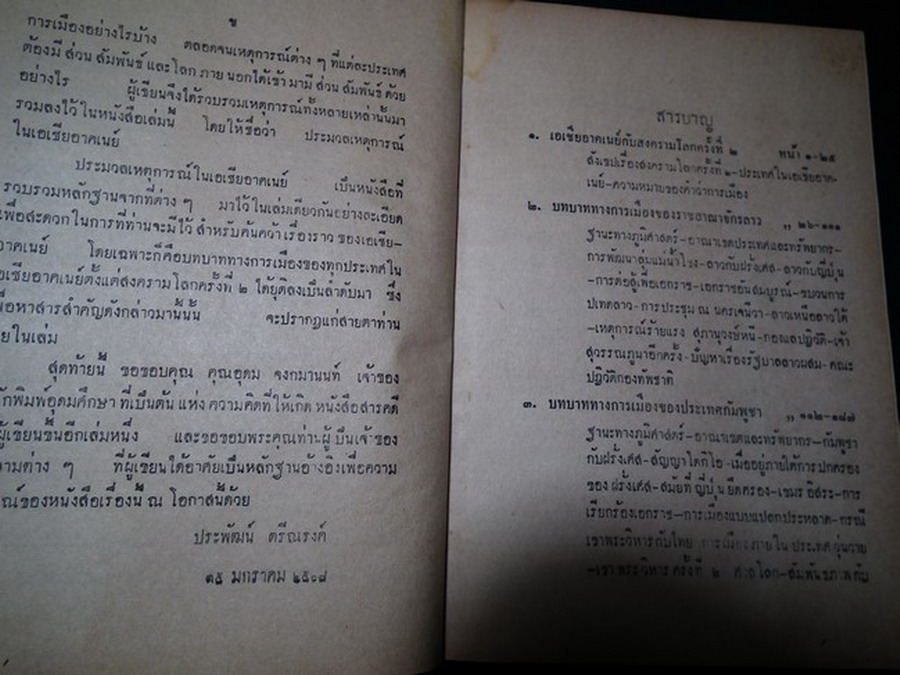 ข
การเมืองอย่างไรบ้าง ตลอดจนเหตุการณ์ต่าง ๆ ที่แต่ละประเทศ
ต้องมี ส่วน สัมพันธ์ และโลก ภาย นอกได้เข้า มามี ส่วน สัมพันธ์ ด้วย
อย่างไร ผู้เขียนจึงได้รวบรวมเหตุการณ์ทั้งหลายเหล่านั้นมา
รวมลงไว้ ในหนังสือเล่มนี้ โดยให้ชื่อว่า ประมวลเหตุการณ์
ในเอเซียอาคเนย์
ประมวลเหตุการณ์ในเอเซียอาคเนย์ เป็นหนังสือที่
รวบรวมหลักฐานจากที่ต่าง ๆ มาไว้ ในเล่มเดียวกันอย่างละเอียด
เพื่อสะดวกในการที่ท่านจะมีไว้ สำหรับค้นคว้าเรื่องราว ของเอเซีย-
อาคเนย์ โดยเฉพาะก็คือบทบาททางการเมืองของทุกประเทศใน
อเซียอาคเนย์ตั้งแต่สงครามโลกครั้งที่ ๒ ได้ยุติลงเป็นลำดับมา ซึ่ง
นื้อหาสารสำคัญดังกล่าวมานั้นนั้น จะปรากฏแก่สายตาท่าน
ายในเล่ม
สุดท้ายนี้ ขอขอบคุณ คุณอุดม จงกมานนท์ เจ้าของ
ักพิมพ์อุดมศึกษา ที่เป็นต้น แห่ง ความคิดที่ให้เกิด หนังสือสารคดี
ผู้เขียนขึ้นอีกเล่มหนึ่ง และขอขอบพระคุณท่านผู้ เป็นเจ้าของ
วามต่าง ๆ ที่ผู้เขียนได้อาศัยเป็นหลักฐานอ้างอิงเพื่อความ
ณ์ของหนังสือเรื่องนี้ ณ โอกาสนี้ด้วย
ประพัฒน์ ตรีณรงค์
๑๕ มกราคม ๒๕๐๘
สารบาญ
๑. เอเซียอาคเนย์กับสงครามโลกครั้งที่ ๒ หน้า ๑-๒๕
สังเขปเรื่องสงครามโลกครั้งที่ ๒-ประเทศในเอเซียอาค-
เนย์-ความหมายของคำว่าการเมือง
๒. บทบาททางการเมืองของราชอาณาจักรลาว ,, ๒๖-๑๑๑
ฐานะทางภูมิศาสตร์-อาณาเขตประเทศและทรัพยากร-
การพัฒนาลุ่มแม่น้ำโขง-ลาวกับฝรั่งเศส-ลาวกับญี่ปุ่น
-การต่อสู้เพื่อเอกราช-เอกราชอันสมบูรณ์-ขบวนการ
ปเทดลาว-การประชุม ณ นครเจนีวา-ลาวเหนือลาวใต้
-เหตุการณ์ร้ายแรง สุภานุวงษ์หนี-กองแลปฏิวัติ-เจ้า
สุวรรณภูมาอีกครั้ง-ปัญหาเรื่องรัฐบาลลาวผสม-คณะ
ปฏิวัติกองทัพชาติ
๓. บทบาททางการเมืองของประเทศกัมพูชา ,, ๑๑๒-๑๘๗
ฐานะทางภูมิศาสตร์-อาณาเขตและทรัพยากร-กัมพูชา
กับฝรั่งเศส-สัญญาโตกิโอ-เมื่ออยู่ภายใต้การปกครอง
ของ ฝรั่งเศส-สมัยที่ ญี่ปุ่น ยึดครอง-เขมร อิสระ-การ
เรียกร้องเอกราช-การเมืองแบบแปลกประหลาด-กรณี
เขาพระวิหารกับไทย การเมือง ภาย ใน ประเทศ วุ่นวาย
-เขา พระ วิหาร ครั้งที่ ๒ ศาล โลก-สัมพันธภาพกับ